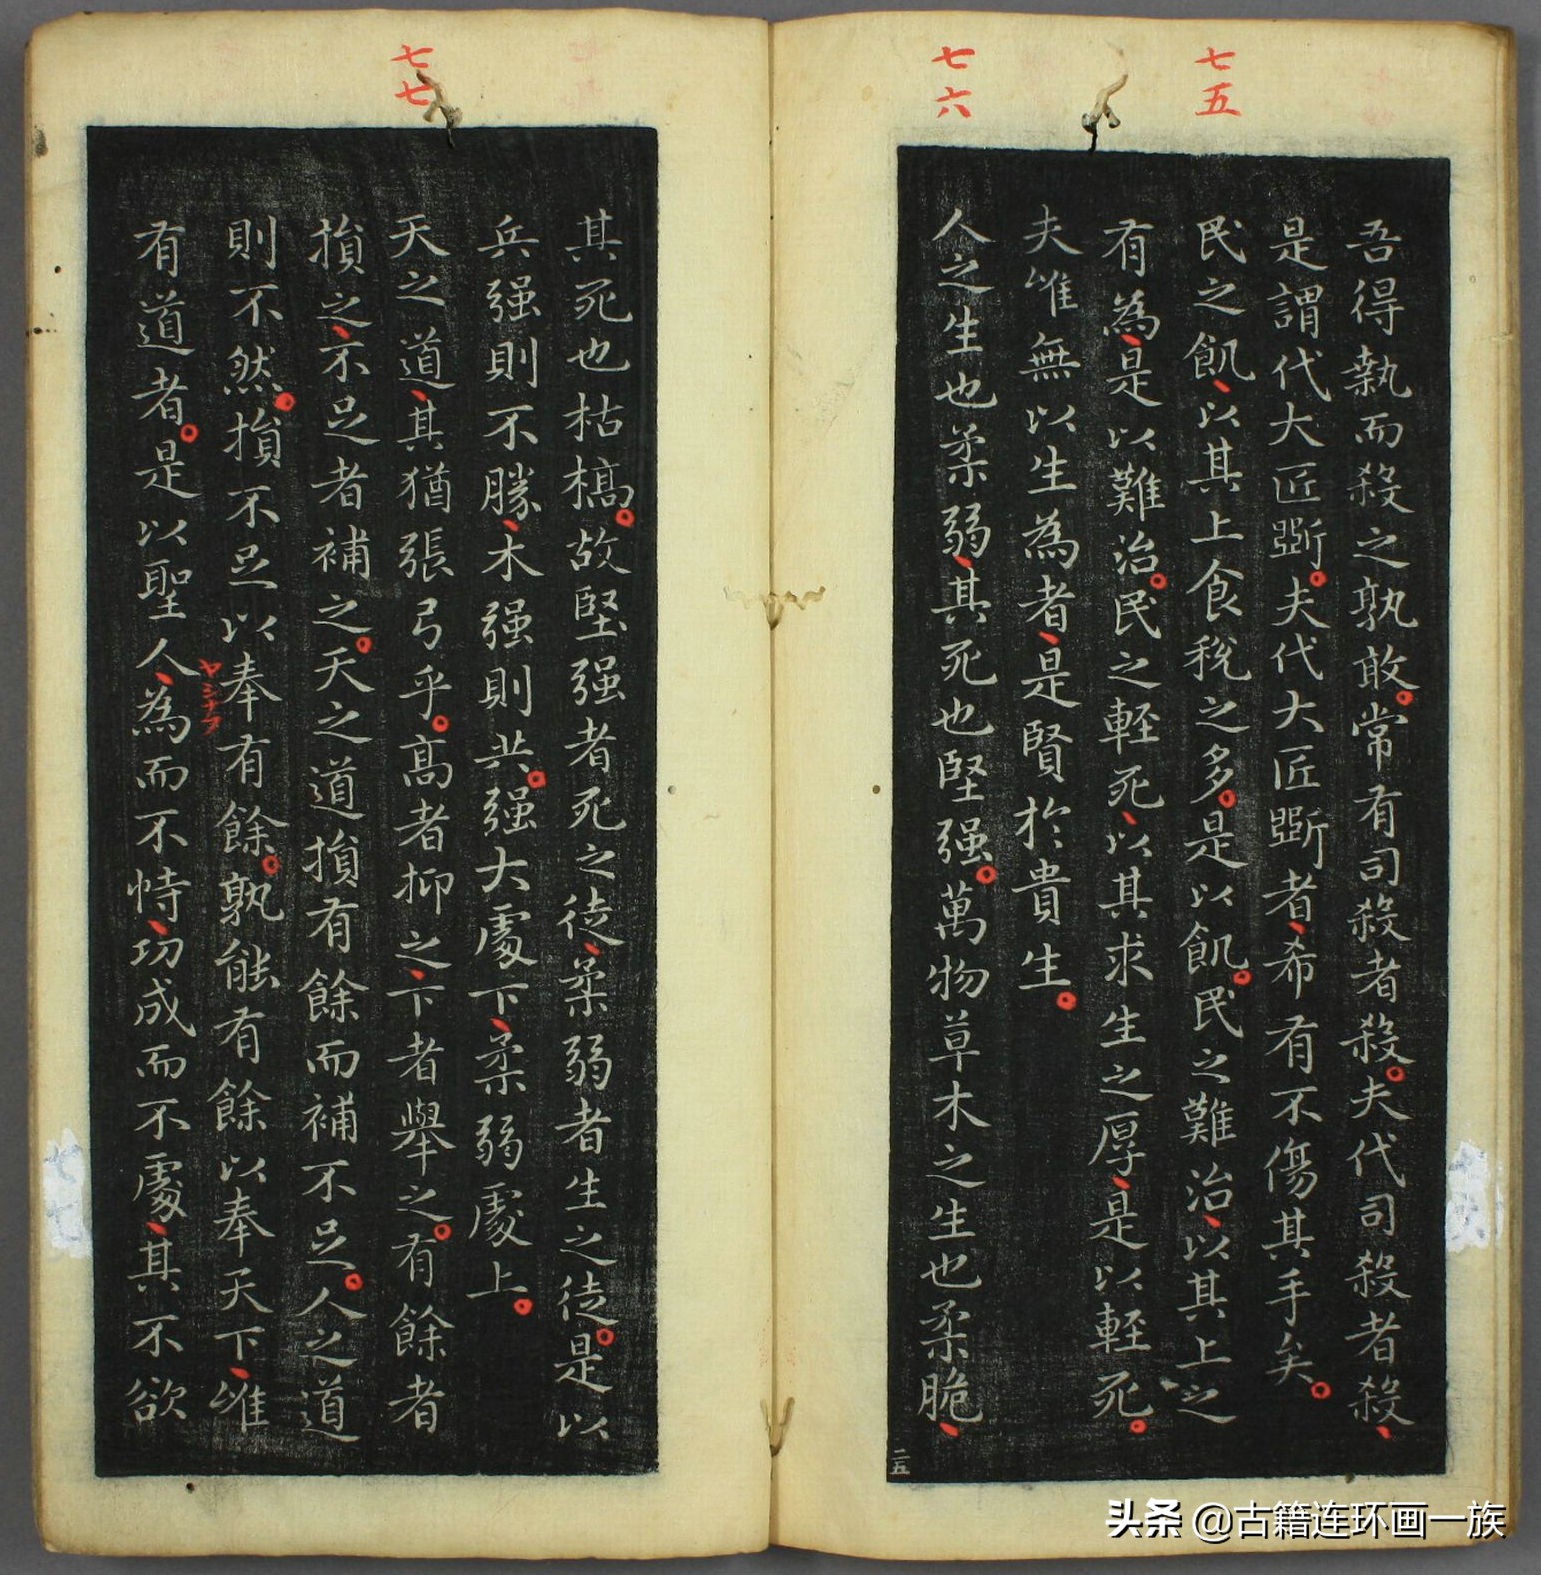 七五
七六
吾得執而殺之孰敢常有司殺者殺夫代司殺者殺
是謂代大匠斲夫代大匠斲者希有不傷其手矣
民之飢以其上食稅之多是以飢民之難治以其上之
有為是以難治民之輕死以其求生之厚是以輕死
夫唯無以生為者是賢於貴生
人之生也柔弱其死也堅强萬物草木之生也柔脆
二五
七七
其死也枯槁故堅强者死之徒柔弱者生之徒是以
兵强則不勝木强則共强大處下柔弱處上
天之道其猶張弓乎高者抑之下者舉之有餘者
損之不足者補之天之道損有餘而補不足人之道
則不然損不足以奉有餘孰能有餘以奉天下唯
有道者是以聖人為而不恃功成而不處其不欲
頭条 @古籍连环画一族